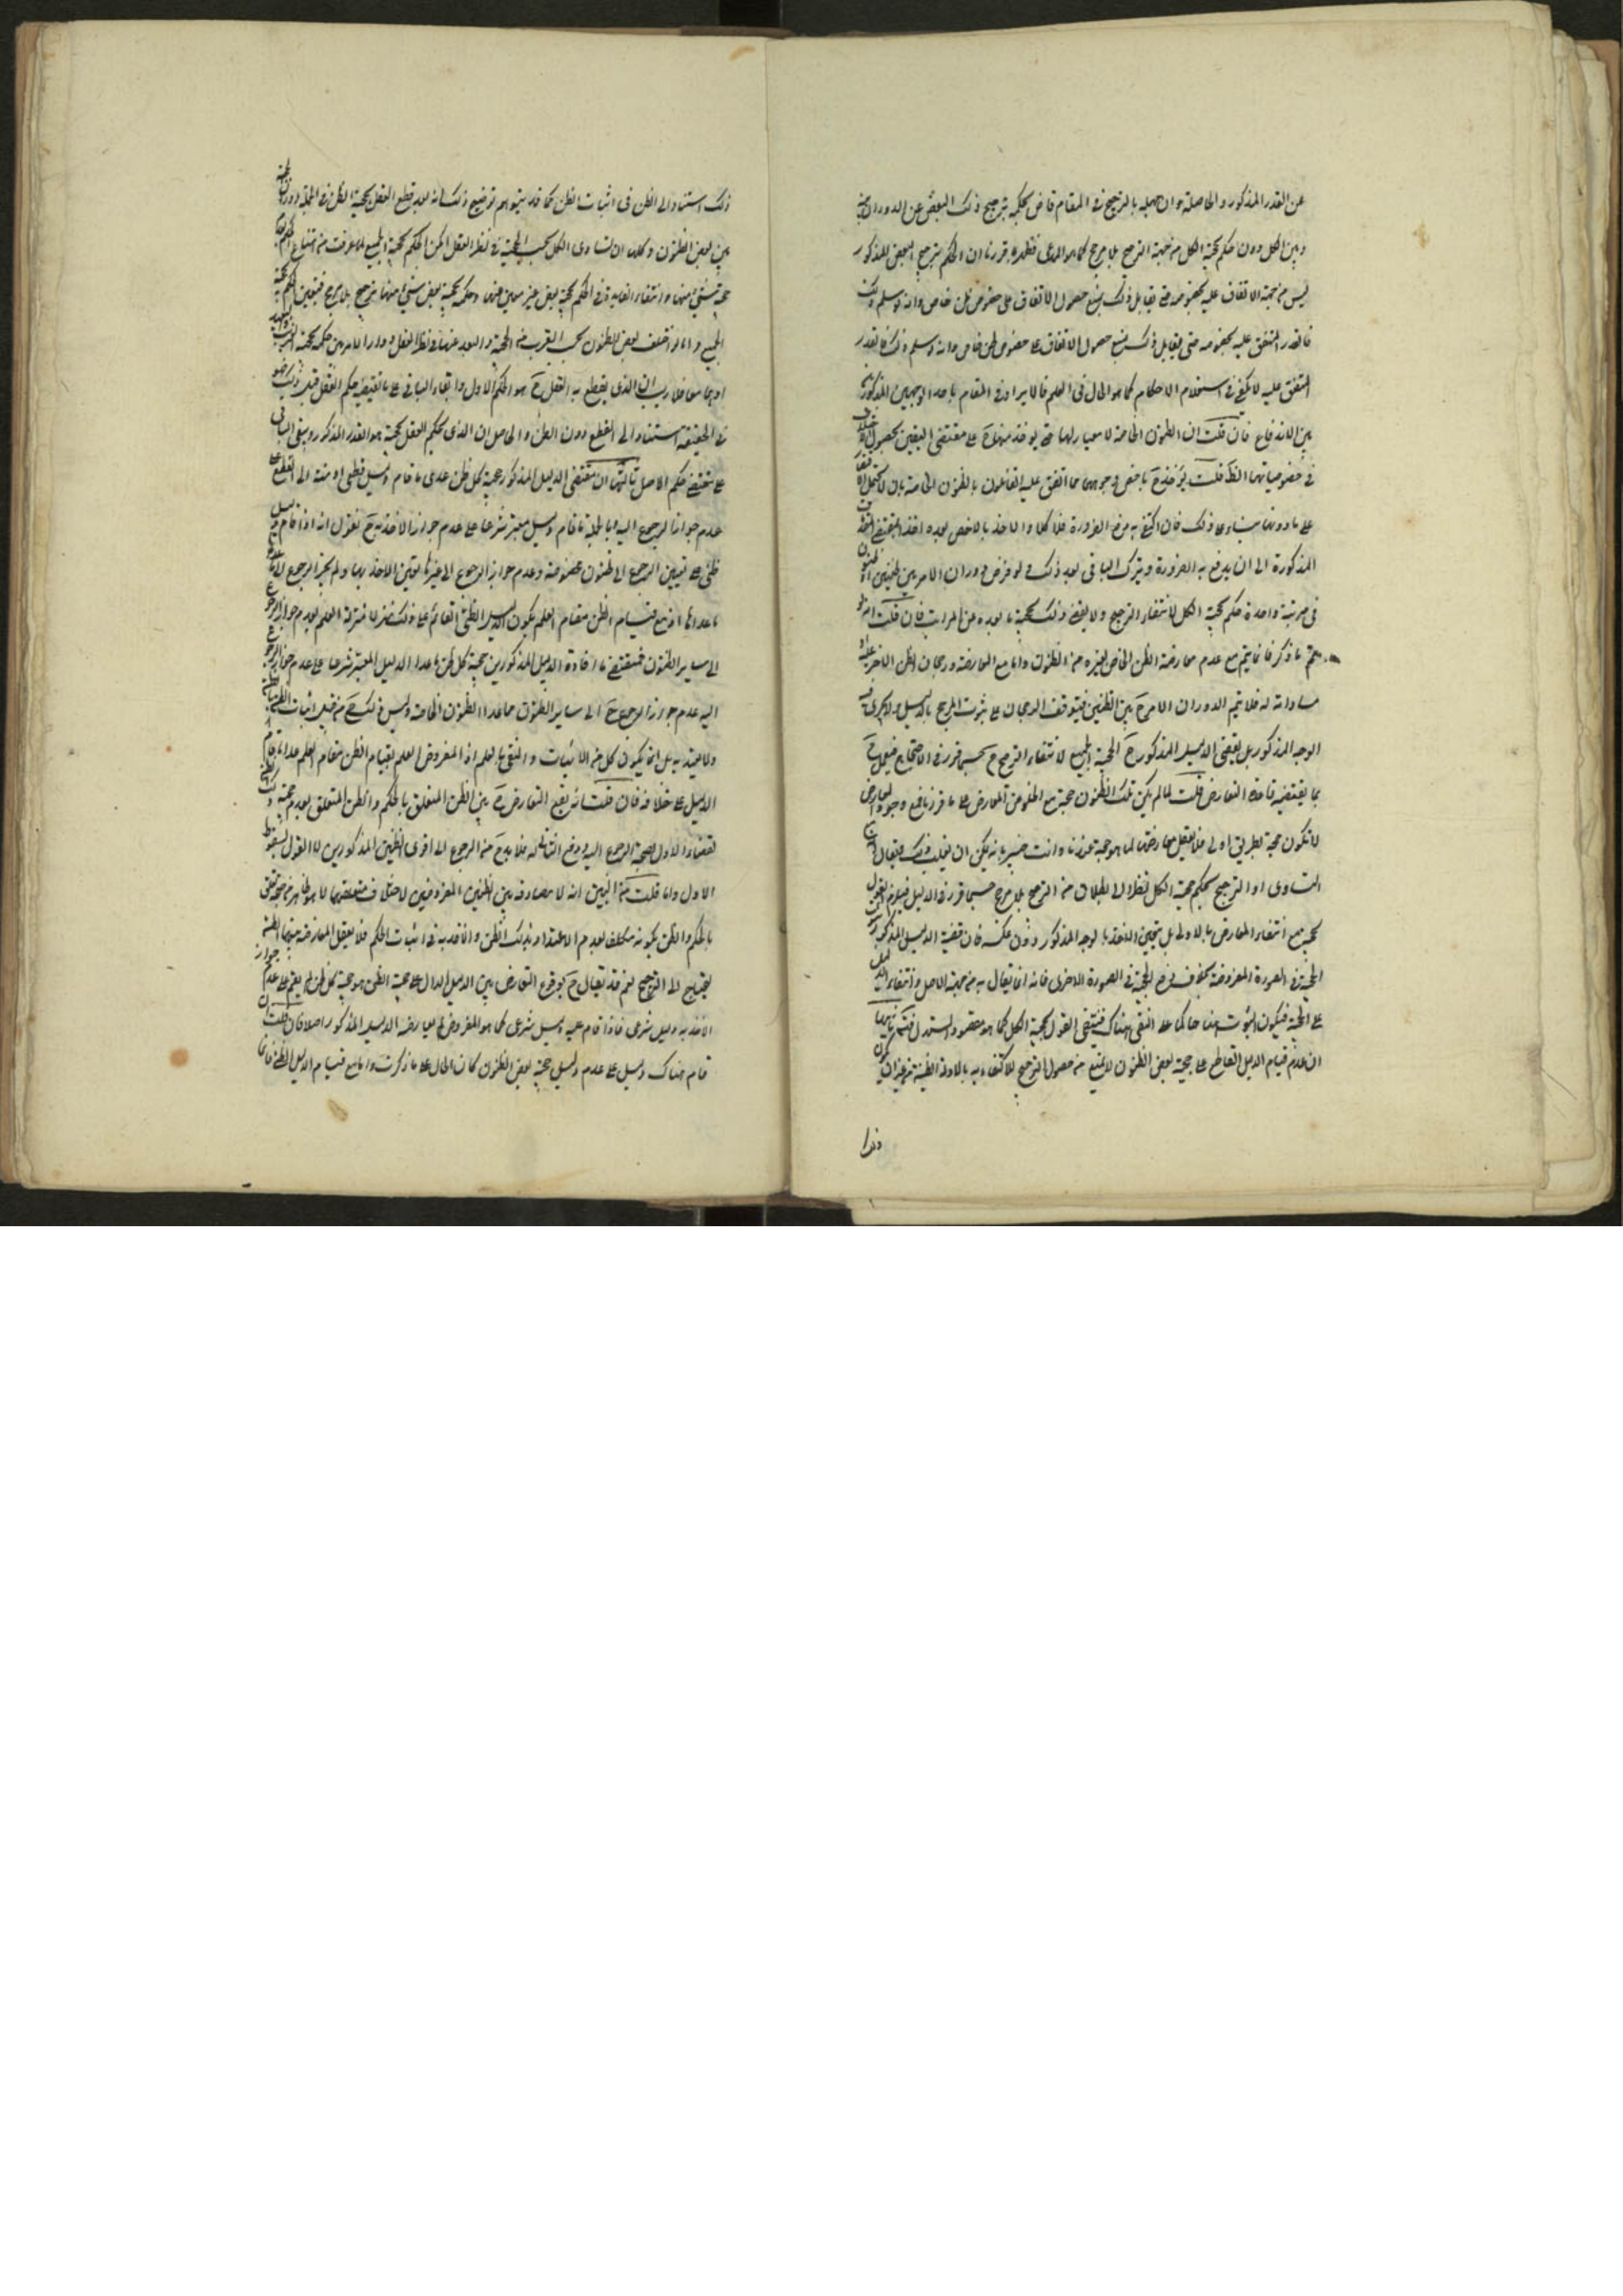 عن القدر المذكور والحاصلة وان جهله بالترجيح في المقام قاض بحكمه بترجيح ذلك البعض عن الدوران بينه
وبين الكل دون حكم بحجية الكل من جهة الترجيح بلا مرجح كما هو المدعى فظهر مما قررنا ان الحكم بترجيح البعض المذكور
ليس من جهة الاتفاق عليه بخصوصه حتى يقابل ذلك بمنع حصول الاتفاق على خصوص ظن خاص وانه لو سلم ذلك
فالقدر المتفق عليه بخصوصه حتى يقابل ذلك بمنع حصول الاتفاق على خصوص ظن خاص وانه لو سلم ذلك فالقدر
المتفق عليه لا يكفي في استعلام الاحكام كما هو الحال في العلم فالايراد في المقام باحد الوجهين المذكورين
بين الاندفاع فان قلت ان الظنون الخاصة لا معيار لها حتى يؤخذ منها ح على مقتضى اليقين لحصول الاختلاف
في خصوصياتها الظ قلت يؤخذ ح باخص وجوهها مما اتفق عليه القائلون بالظنون الخاصة بان لا يحتمل الاقتصار
على ما دونها بناء على ذلك فان اكتفى به في دفع الضرورة فلا كلام والا اخذ بالاخص بعده اخذا بمقتضى المقدمة
المذكورة الى ان يدفع به الضرورة ويترك الباقي بعد ذلك ولو فرض دوران الامر بين ظنين او ظنون
في مرتبة واحدة حكم بحجية الكل لانتفاء الترجيح ولا يقضي ذلك بحجية ما بعده من المراتب فان قلت انه
يتم ما ذكر فانما يتم مع عدم معارضة الظن الخاص لغيره من الظنون واما مع المعارضة ورجحان الظن الاخر عليه او
مساواته له فلا يتم الدوران الامر ح بين الظنين فيتوقف الرجحان على ثبوت المرجح بالدليل ولا يجري فيه
الوجه المذكور بل يقضي الدليل المذكور ح الحجية الجميع لانتفاء الترجيح ح حسبما قرر في الاحتجاج فيعمل ح
بما يقتضيه قاعدة التعارض قلت لما لم يكن تلك الظنون حجة مع الخلو عن المعارض على ما قرر فمع وجود المعارض
لا تكون حجة بطريق اولى فلا يعقل معارضتها لما هو حجة عندنا وانت خبير بانه يمكن ان يقلب ذلك فيقال ان
التساوي او الترجيح بحكم حجية الكل نظرا الى بطلان الترجيح بلا مرجح حسبما قرر في الدليل فيلزم القول
بحجيته مع انتفاء المعارض بالاولى بل يتعين الاخذ بالوجه المذكور دون عكسه فان قضية الدليل المذكور ثبوت
الحجية في الصورة المفروضة بخلاف دفع الحجية في الصورة الاخرى فانه انما يقال به من جهة الاصل وانتفاء الدليل
على الحجية فيكون الثبوت هنا حاكما على النفي هناك فينتفي القول بحجية الكل كما هو مقصود المستدل فتأمل ثانيها
ان عدم قيام الدليل القاطع على حجية بعض الظنون لا يمنع من حصول الترجيح للاكتفاء فيه بالادلة الظنية من غير ان يكون
ذلك استنادا الى الظن في اثبات الظن كما قد يتوهم توضيح ذلك انه بعد قطع العقل بحجية الظن في الجملة ودوران الحجية
بين بعض الظنون وكلها ان تساوى الكل بحسب الحجية في نظر العقل امكن الحكم بحجية الجميع لما عرفت من امتناع الحكم بعدم
حجية شيء منها وانتفاء الفائدة في الحكم بحجية بعض غير معين منها وحكمه بحجية بعض شيء منها ترجيح بلا مرجح فيتعين الحكم بحجية
الجميع واما لو اختلف بعض الظنون بحسب القرب من الحجية والبعد عنها في نظر العقل ودار الامر بين حكمه بحجية القريب والبعيد
او هما معا فلا ريب ان الذي يقطع به العقل ح هو الحكم الاول وابقاء الباقي على ما يقتضيه حكم العقل قبل ذلك فهو
في الحقيقة استناد الى القطع دون الظن والحاصل ان الذي يحكم العقل بحجيته هو القدر المذكور ويبقى الباقي
على مقتضى حكم الاصل ثالثها ان مقتضى الدليل المذكور حجية كل ظن عدى ما قام دليل قطعي او منته الى القطع على
عدم جواز الرجوع اليه وبالجملة ما قام دليل معتبر شرعا على عدم جواز الاخذ به ح نقول انه اذا قام دليل
ظني على تعيين الرجع الى ظنون مخصوصة وعدم جواز الرجوع الى غيرها تعين الاخذ بها ولم يجز الرجوع الى
ما عداها اذ مع قيام الظن مقام العلم يكون الدليل الظني القائم على ذلك منزلا منزلة العلم بعدم جواز الرجوع
الى سائر الظنون فمقتضى ما افاده الدليل المذكور من حجية كل ظن ما عدا الدليل المعتبر شرعا على عدم جواز الرجوع
اليه عدم جواز الرجوع ح الى سائر الظنون مما عدا الظنون الخاصة وليس ذلك ح من قبيل اثبات الظن بالظن
ولا يعتد به بل انما يكون كل من الاثبات والنفي بالعلم اذ المفروض العلم بقيام الظن مقام العلم عدا ما قام
الدليل على خلافه فان قلت انه يقع التعارض ح بين الظن المتعلق بالحكم والظن المتعلق بعدم حجية ذلك الظن
لقضاء الاول بصحة الرجوع اليه ودفع الثاني له فلا بد ح من الرجوع الى اقوى الظنين المذكورين لا القول بسقوط
الاول راسا قلت من البين انه لا مصادفة بين الظنين المفروضين لاختلاف متعلقهما لا هو ظاهر من جهة تحقق
بالحكم والظن بكونه مكلفا بعدم الاعتداد بذلك الظن والاخذ به في اثبات الحكم فلا يعقل المعارضة بينهما ليحتاج
ليحتاج الى الترجيح نعم قد يقال ح بوقوع التعارض بين الدليل الدال على حجية الظن هو حجية كل ظن لم يقم على عدم جواز
الاخذ به دليل شرعي فاذا قام عليه دليل شرعي كما هو المفروض لم يعارضه الدليل المذكور اصلا فان قلت ان
قام هناك دليل على عدم دليل حجية بعض الظنون كان الحال على ما ذكرت واما مع قيام الدليل الظني فانما